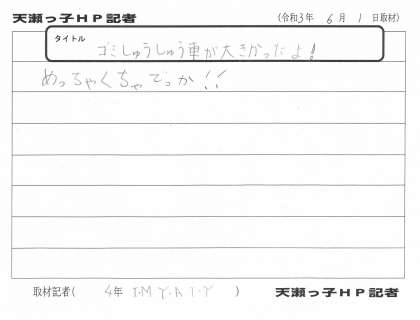 天瀬っ子HP記者 (令和3年 6月 1日取材)
タイトル
ゴミしゅうしゅう車が大きかったよ!
めっちゃくちゃでっか!!
取材記者( 4年 I・M Y・A I・Y ) 天瀬っ子HP記者